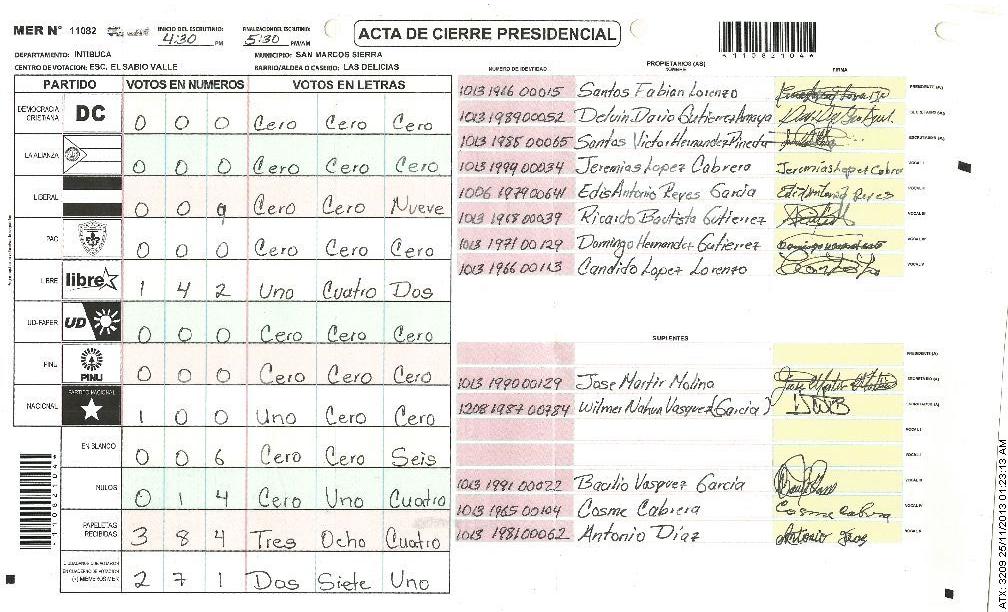 MER N° 11082 INICIO DEL ESCRUTINIO: 4:30 PM FINALIZACION DEL ESCRUTINIO: 5:30 PM/AM ACTA DE CIERRE PRESIDENCIAL
*1108210 4*
DEPARTAMENTO: INTIBUCA MUNICIPIO: SAN MARCOS SIERRA
CENTRO DE VOTACION: ESC. EL SABIO VALLE BARRIO/ALDEA O CASERIO: LAS DELICIAS
PARTIDO VOTOS EN NUMEROS VOTOS EN LETRAS
DEMOCRACIA CRISTIANA DC 0 0 0 Cero Cero Cero
LA ALIANZA 0 0 0 Cero Cero Cero
LIBERAL 0 0 9 Cero Cero Nueve
PAC 0 0 0 Cero Cero Cero
LIBRE libre 1 4 2 Uno Cuatro Dos
UD-FAPER UD 0 0 0 Cero Cero Cero
PINU PINU 0 0 0 Cero Cero Cero
NACIONAL PARTIDO NACIONAL 1 0 0 Uno Cero Cero
EN BLANCO 0 0 6 Cero Cero Seis
NULOS 0 1 4 Cero Uno Cuatro
PAPELETAS RECIBIDAS 3 8 4 Tres Ocho Cuatro
CIUDADANOS QUE VOTARON EN CUADERNO DE VOTACION (+) MIEMBROS MER 2 7 1 Dos Siete Uno
NUMERO DE IDENTIDAD PROPIETARIOS (AS) NOMBRE FIRMA
1013 1966 00015 Santos Fabian Lorenzo PRESIDENTE (A)
1013 1989 00052 Delvin Dario Gutierrez Amaya SECRETARIO (A)
1013 1985 00065 Santos Victor Hernandez Pineda ESCRUTADOR (A)
1013 1999 00034 Jeremias Lopez Cabrera Jeremías Lopez Cabrera VOCAL I
1006 1979 00641 Edis Antonio Reyes Garcia Edis Antonio Reyes VOCAL II
1013 1968 00039 Ricardo Bautista Gutierrez VOCAL III
1013 1971 00129 Domingo Hernandez Gutierrez VOCAL IV
1013 1966 00113 Candido Lopez Lorenzo VOCAL V
SUPLENTES
PRESIDENTE (A)
1013 1990 00129 Jose Martir Molina SECRETARIO (A)
1208 1987 00784 Wilmer Nahun Vasquez (Garcia) ESCRUTADOR (A)
VOCAL I
VOCAL II
1013 1991 00022 Bacilio Vasquez Garcia VOCAL III
1013 1965 00104 Cosme Cabrera Cosme Cabrera VOCAL IV
1013 1981 00062 Antonio Díaz Antonio VOCAL V
ATX: 3209 25/11/2013 01:23:13 AM